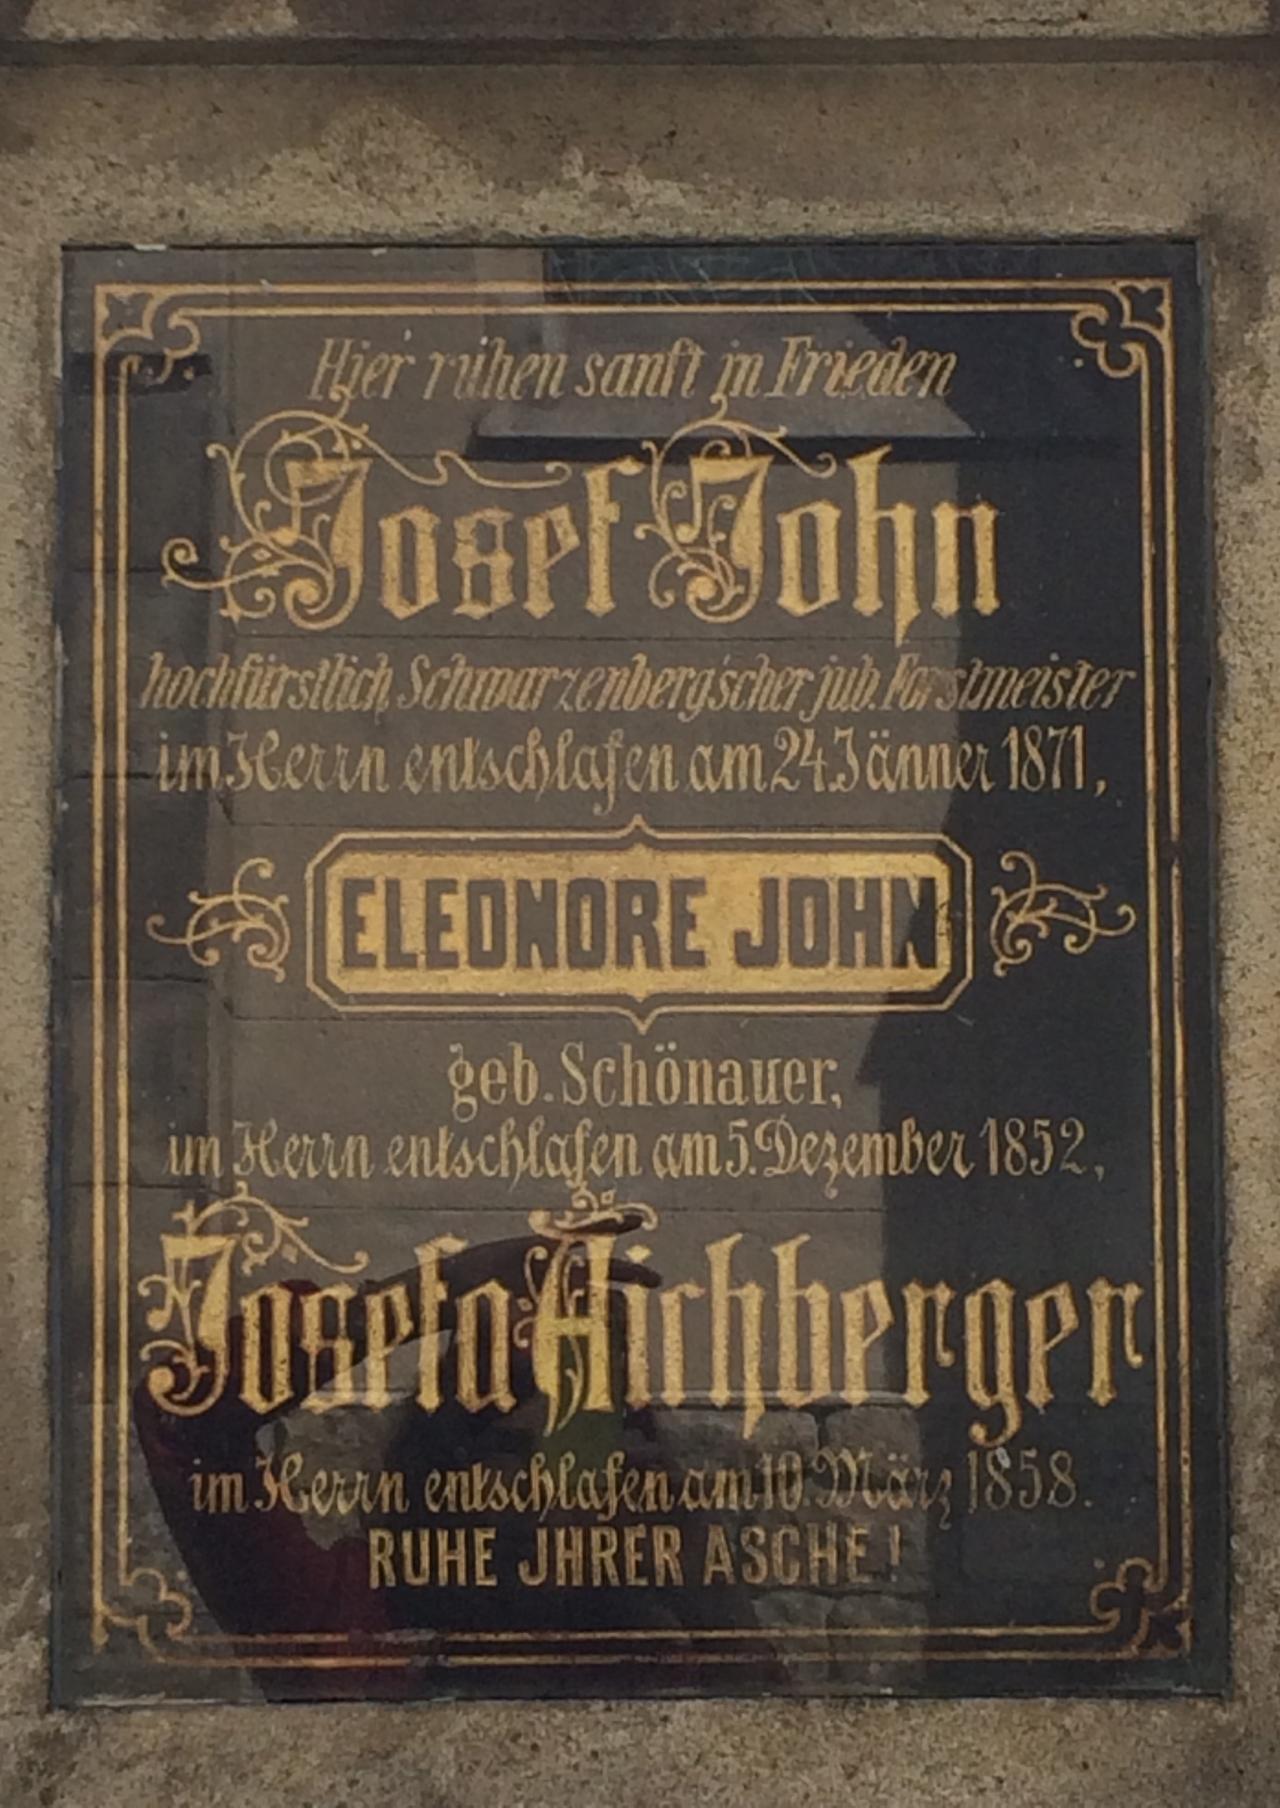 Hier ruhen sanft in Frieden
Josef John
hochfürstlich Schwarzenberg'scher jub. Forstmeister
im Herrn entschlafen am 24. Jänner 1871,
ELEONORE JOHN
geb. Schönauer,
im Herrn entschlafen am 5. Dezember 1852,
Josefa Aichberger
im Herrn entschlafen am 10. März 1858.
RUHE JHRER ASCHE!